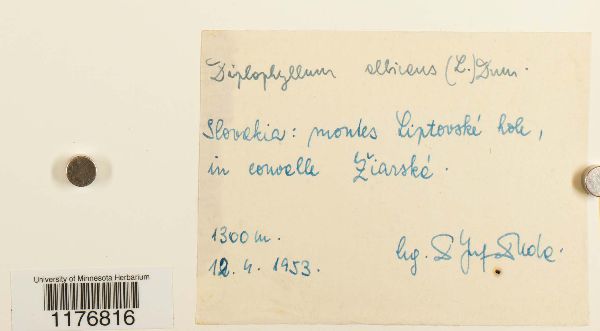 Diplophyllum albicans (L.) Dum.
Slovakia: montes Liptovské hole,
in convalle Žiarská.
1300 m.
12. 4. 1953.
leg.
University of Minnesota Herbarium
1176816